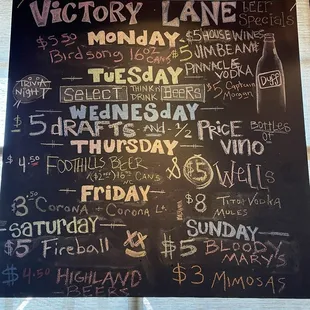 VICTORY LANE beer Specials
MONDAY
$5.50 Birdsong 16oz CANS
$5 HOUSE WINES
$5 JIM BEAM
PINNACLE VODKA
$5 Captain Morgan
TUESDAY
TRIVIA NIGHT
SELECT THINK N DRINK BEERS
Duff
WEDNESDAY
$5 DRAFTS AND 1/2 PRICE BOTTLES OF VINO
THURSDAY
$4.50 FOOTHILLS BEER
16oz CANS
& $5 Wells
FRIDAY
$3 Corona + Corona Lt.
$8 TITO'S VODKA MULES
SATURDAY
$5 Fireball
$4.50 HIGHLAND BEERS
SUNDAY
$5 BLOODY MARY'S
$3 MIMOSAS